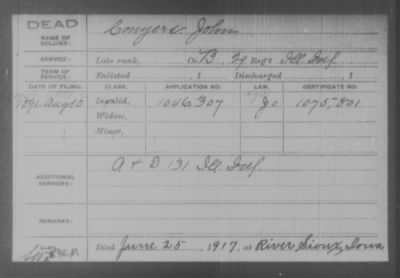 DEAD
NAME OF SOLDIER:
Conyers John
SERVICE:
Late rank, Co. B, 29 Reg't Ill. Inf.
TERM OF SERVICE:
Enlisted , 1 Discharged , 1
DATE OF FILING. CLASS. APPLICATION NO. LAW. CERTIFICATE NO.
1891 Aug 10 Invalid, 1046,307 1075,801
Widow,
Minor,
ADDITIONAL SERVICES:
A & D 131 Ill. Inf.
REMARKS:
Died June 25, 1917, at River Sioux, Iowa